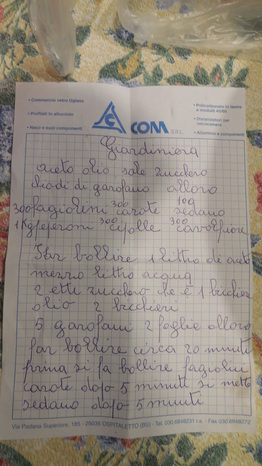 • Commercio vetro Egless
• Profilati in alluminio
• Nano e suoi componenti
COM S.R.L.
• Policarbonato in lastre e modulare
• Distanziatori per vetrocamera
• Alluminio e componenti
Giardiniera
aceto olio sale zucchero
chiodi di garofano alloro
300 fagiolini 300 carote 100 sedano
1 Kg peperoni 300 cipolle 300 cavolfiore
Far bollire 1 litro de aceto
mezzo litro acqua
2 etti zucchero sle è 1 bicchiere
olio 2 bicchieri
5 garofani 2 foglie alloro
far bollire circa 20 minuti
prima si fa bollire fagiolini
carote dopo 5 minuti si mette
sedano dopo 5 minuti
Via Padana Superiore, 185 - 25035 OSPITALETTO (BS) - Tel. 030.6848231 r.a. - Fax 030.6848272